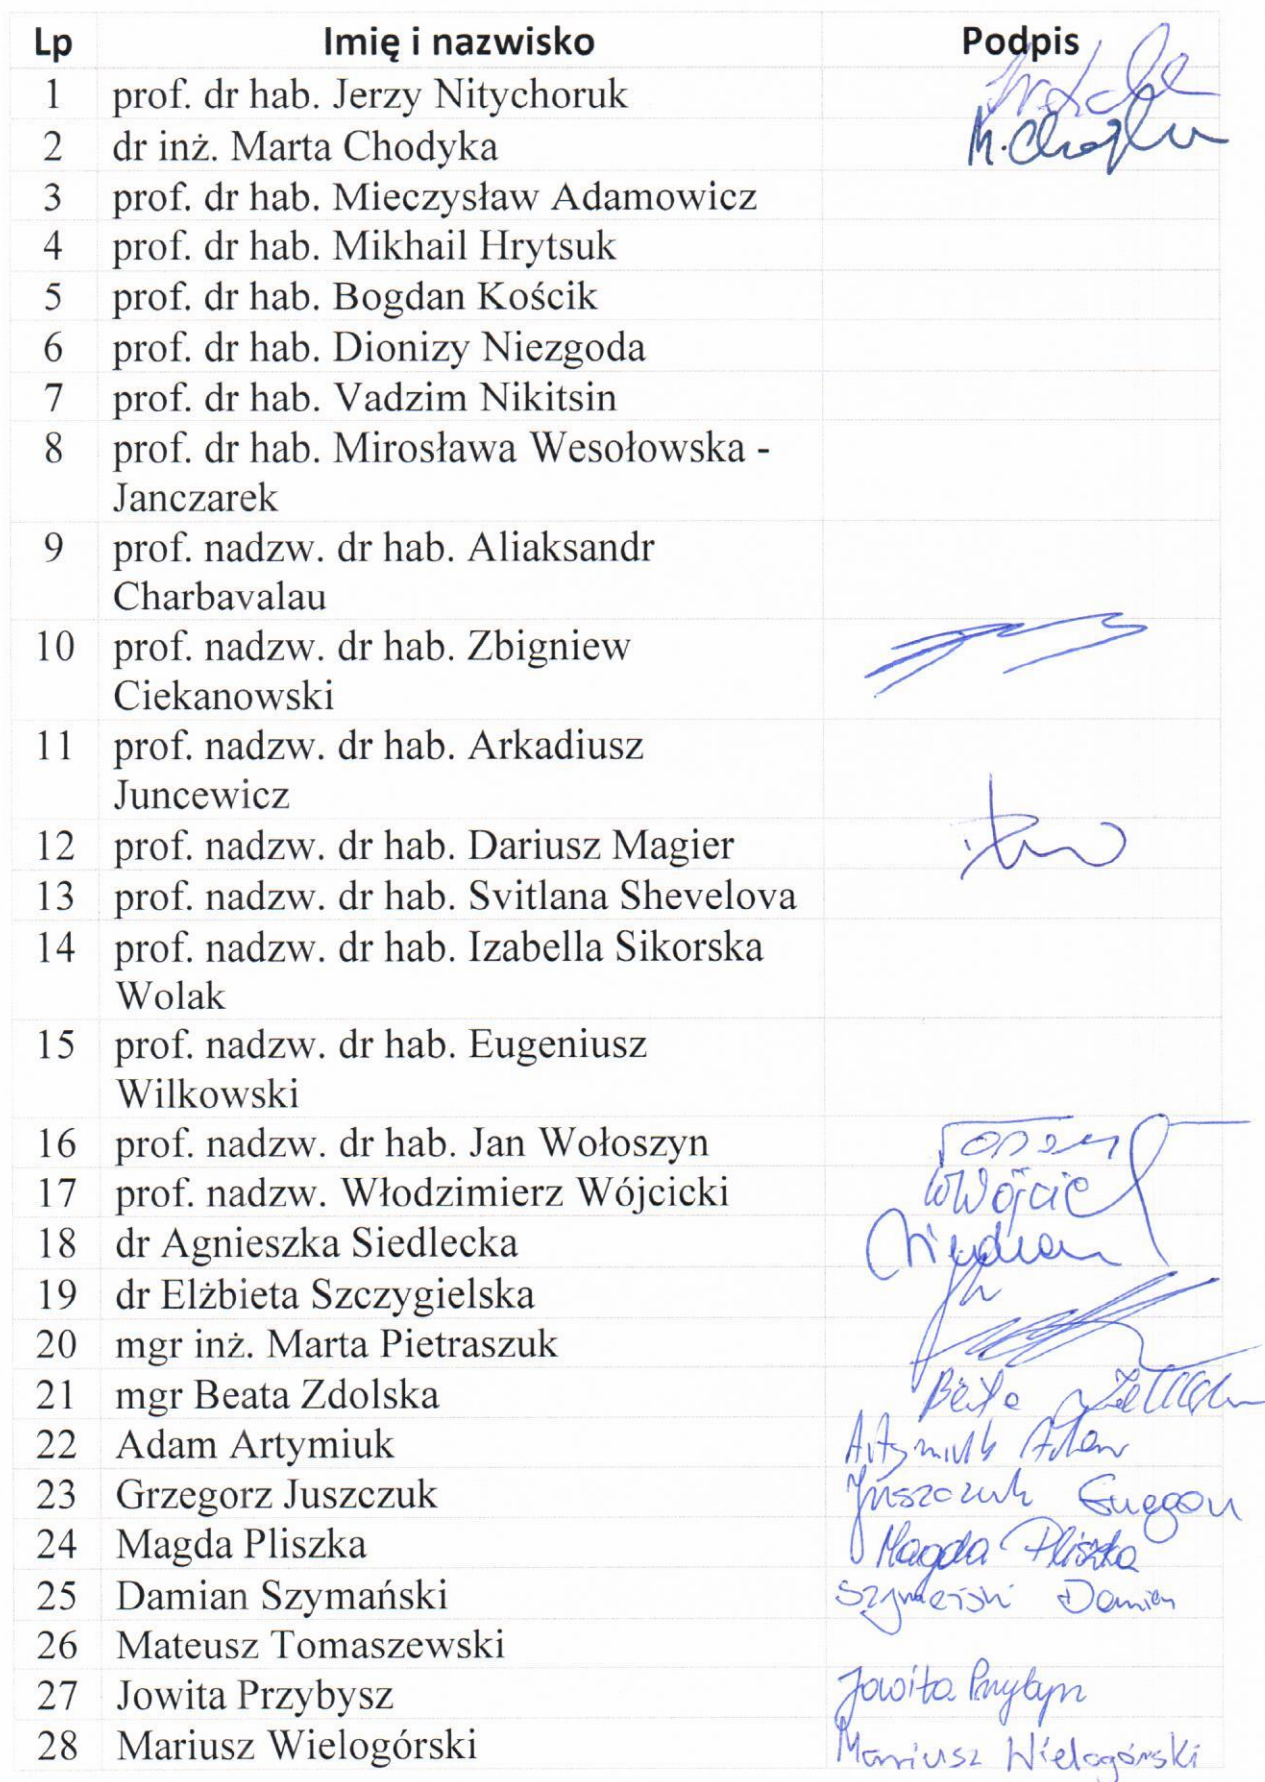 Lp Imię i nazwisko Podpis
1 prof. dr hab. Jerzy Nitychoruk
2 dr inż. Marta Chodyka M.
3 prof. dr hab. Mieczysław Adamowicz
4 prof. dr hab. Mikhail Hrytsuk
5 prof. dr hab. Bogdan Kościk
6 prof. dr hab. Dionizy Niezgoda
7 prof. dr hab. Vadzim Nikitsin
8 prof. dr hab. Mirosława Wesołowska -
Janczarek
9 prof. nadzw. dr hab. Aliaksandr
Charbavalau
10 prof. nadzw. dr hab. Zbigniew
Ciekanowski
11 prof. nadzw. dr hab. Arkadiusz
Juncewicz
12 prof. nadzw. dr hab. Dariusz Magier
13 prof. nadzw. dr hab. Svitlana Shevelova
14 prof. nadzw. dr hab. Izabella Sikorska
Wolak
15 prof. nadzw. dr hab. Eugeniusz
Wilkowski
16 prof. nadzw. dr hab. Jan Wołoszyn
17 prof. nadzw. Włodzimierz Wójcicki
18 dr Agnieszka Siedlecka
19 dr Elżbieta Szczygielska
20 mgr inż. Marta Pietraszuk
21 mgr Beata Zdolska Beata
22 Adam Artymiuk Artymiuk Adam
23 Grzegorz Juszczuk Juszczuk Grzegorz
24 Magda Pliszka Magda Pliszka
25 Damian Szymański Szymański Damian
26 Mateusz Tomaszewski
27 Jowita Przybysz Jowita Przybysz
28 Mariusz Wielogórski Mariusz Wielogórski